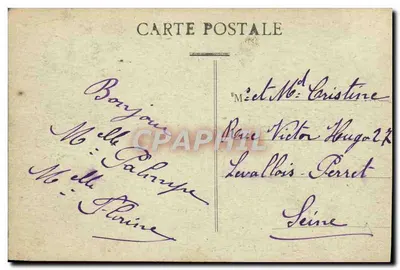 CARTE POSTALE
Bonjour
Melle Palompe
Melle Florine
Mr et Md Cristine
Rue Victor Hugo 27
Levallois-Perret
Seine
CPAPHIL